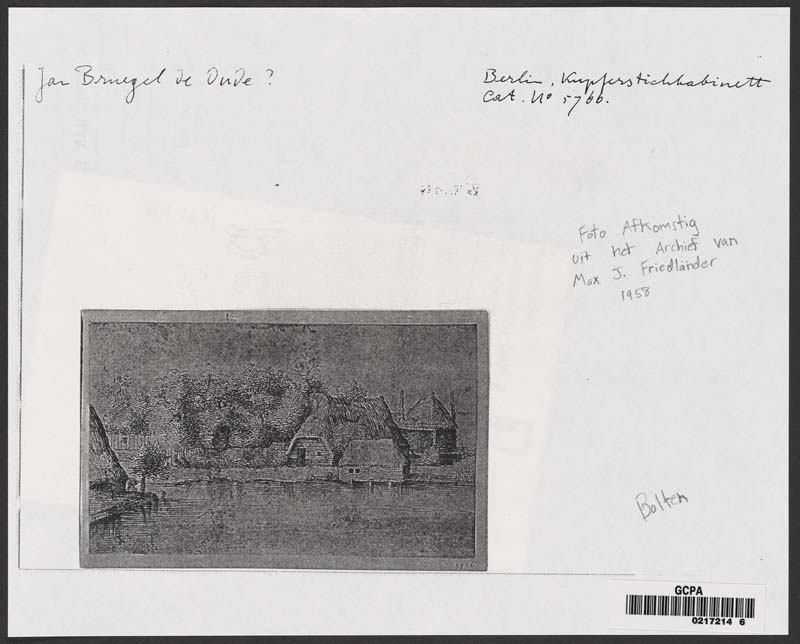 Jan Bruegel de Oude?
Berlin, Kupferstichkabinett
Cat. No 5766.
Foto Afkomstig
uit het Archief van
Max J. Friedländer
1958
Bolten
5766
GCPA
0217214 6